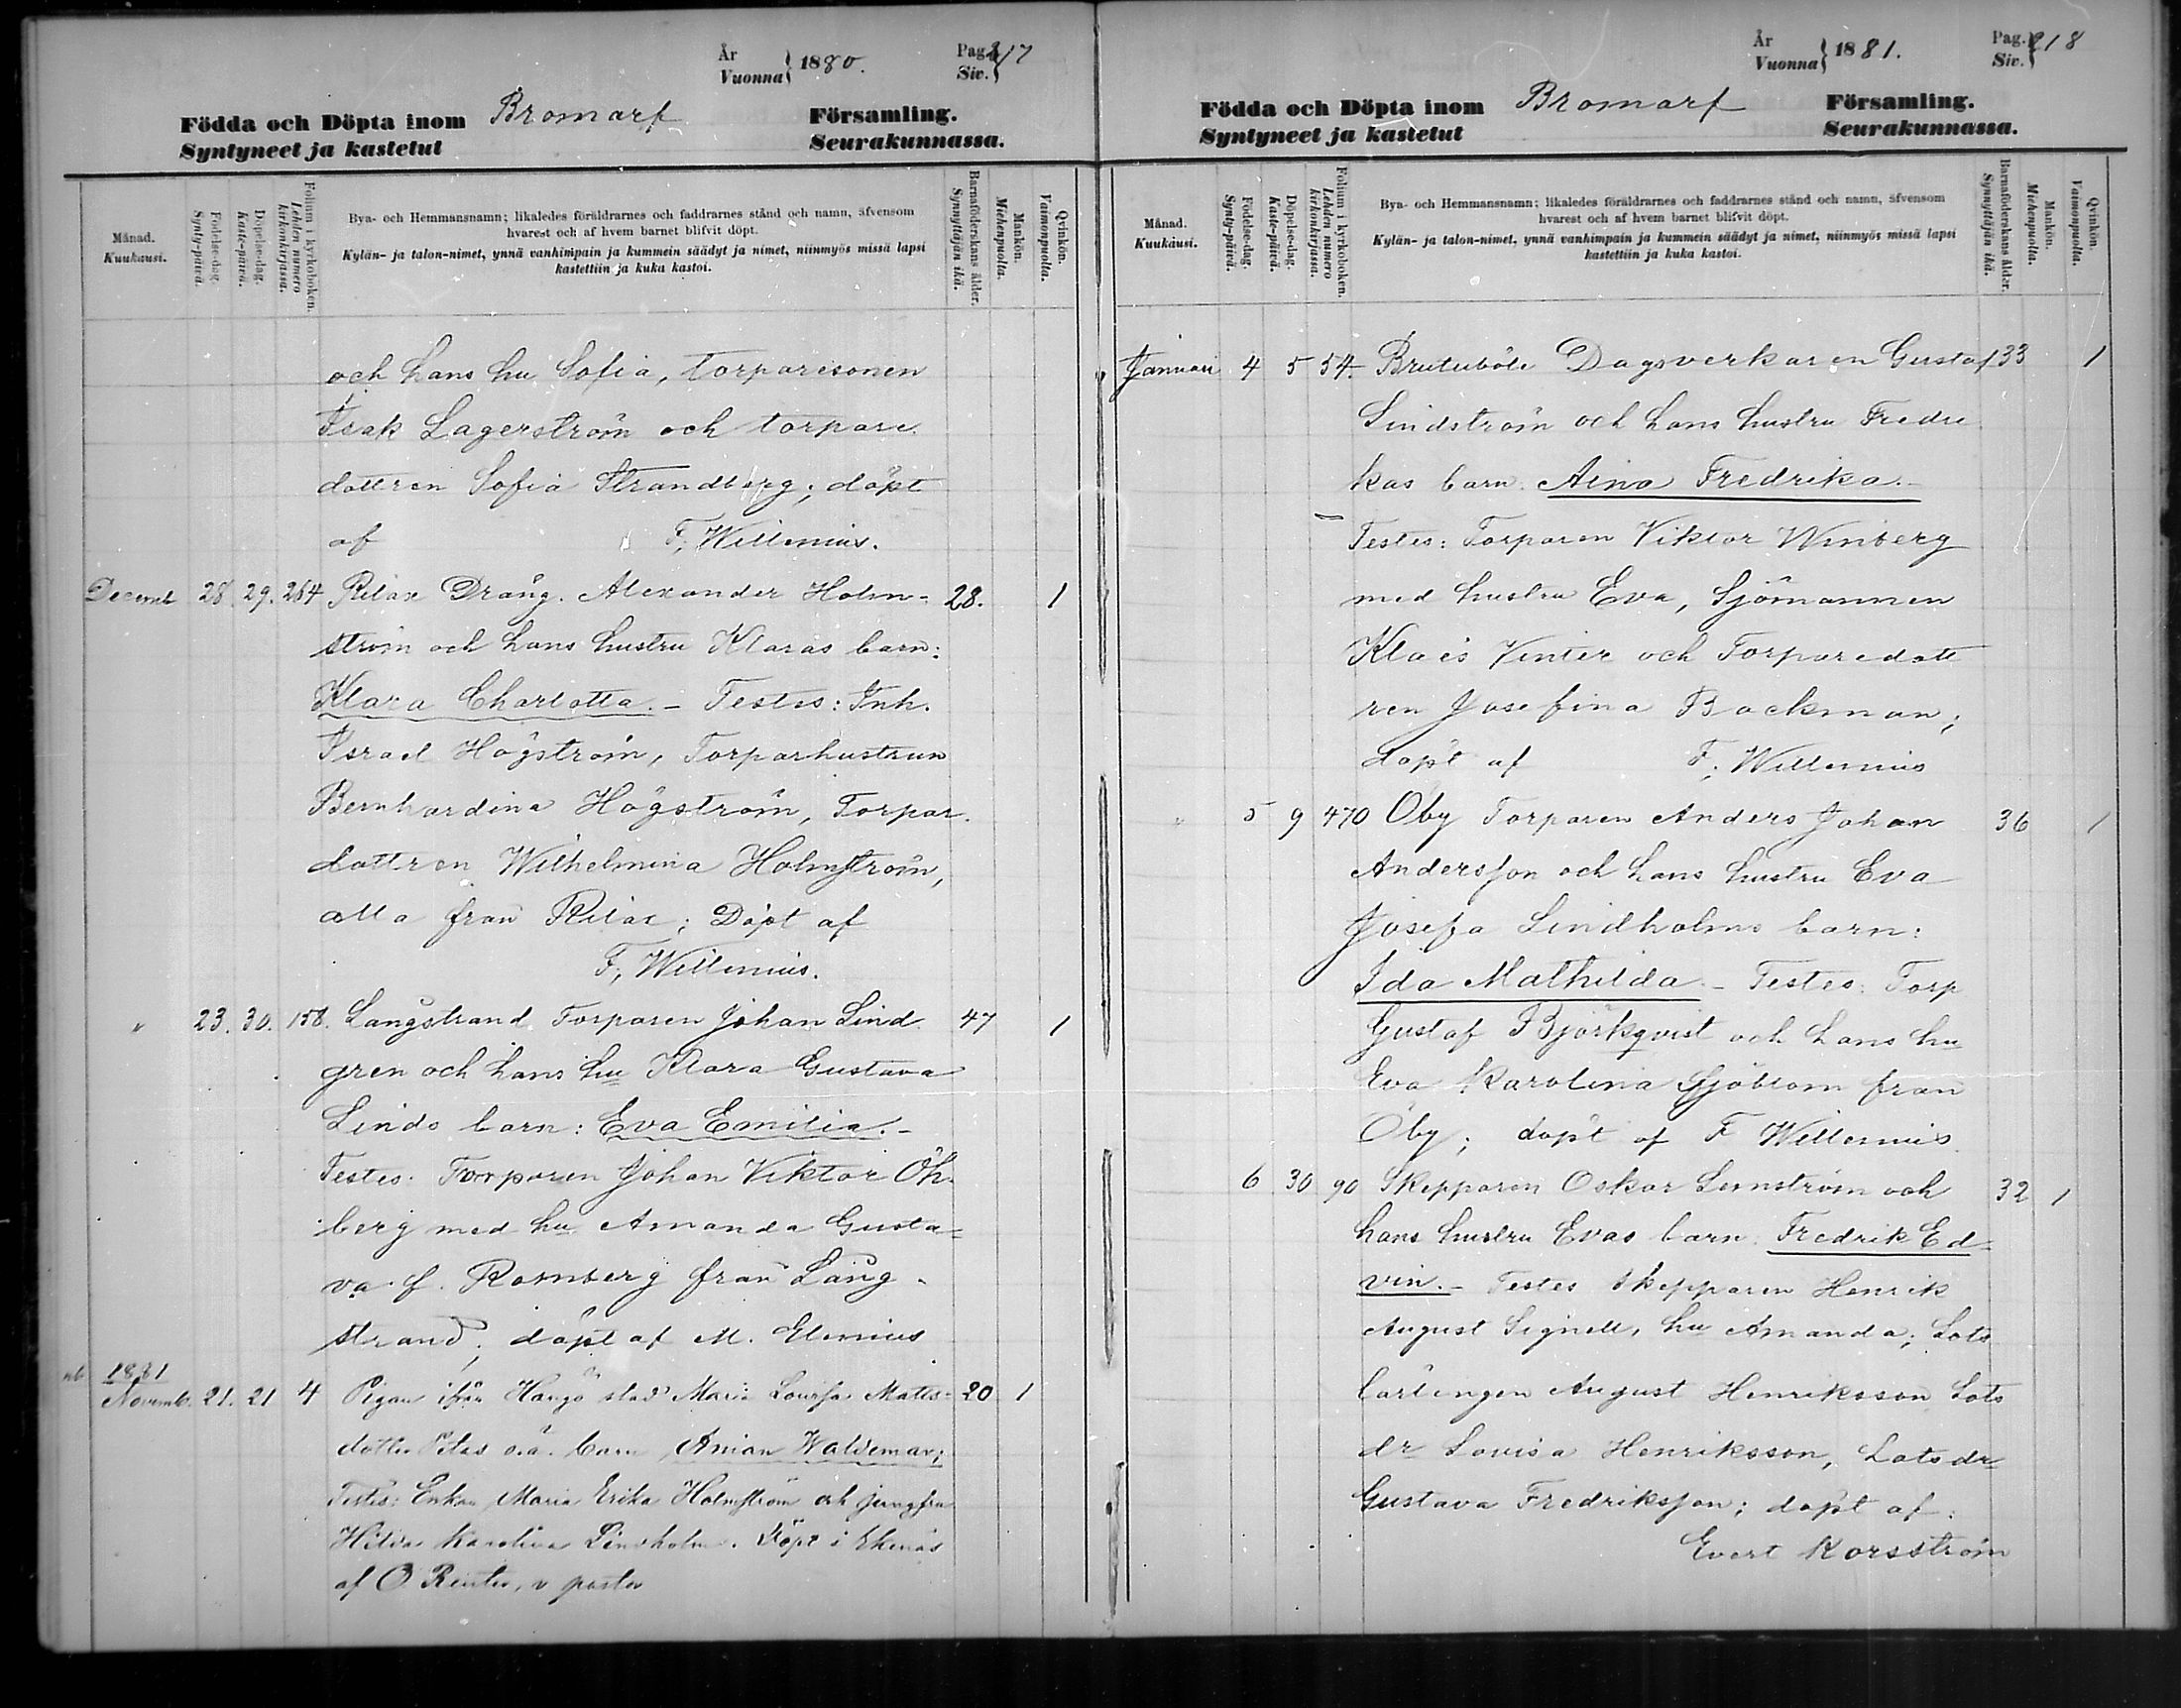 År
Vuonna } 1880.
Pag.
Siv. } 217
Födda och Döpta inom Bromarf Församling.
Syntyneet ja kastetut Seurakunnassa.
Månad.
Kuukausi.
Födelse-dag.
Synty-päivä.
Döpelse-dag.
Kaste-päivä.
Folium i kyrkoboken.
Lehden numero
kirkonkirjassa.
Bya- och Hemmansnamn; likaledes föräldrarnes och faddrarnes stånd och namn, äfvensom
hvarest och af hvem barnet blifvit döpt.
Kylän- ja talon-nimet, ynnä vanhimpain ja kummein säädyt ja nimet, niinmyös missä lapsi
kastettiin ja kuka kastoi.
Barnaföderskans ålder.
Synnyttäjän ikä.
Mankön.
Miehenpuolta.
Qvinkön.
Vaimonpuolta.
och hans hu Sofia, torparesonen
Isak Lagerström och torpare
dottren Sofia Strandberg; döpt
af F. Willenius.
Decemb 28. 29. 264 Rilax Dräng. Alexander Holm- 28. 1
ström och hans hustru Klaras barn:
Klara Charlotta. - Testes: Inh.
Israel Högström, Torparhustrun
Bernhardina Högström, Torpar.
dottren Wilhelmina Holmström,
alla från Rilax; Döpt af
F. Willenius.
" 23. 30. 158. Långstrand Torparen Johan Lind 47 1
gren och hans hu Klara Gustava
Linds barn: Eva Emilia. -
Testes: Torparen Johan Viktor Öh.
berg med hu Amanda Gusta-
va f. Romberg från Lång-
strand; döpt af M. Elenius
nb 1881
Novemb. 21. 21 4 Pigan ifrån Hangö stad Maria Lovisa Matts- 20 1
dotter Pitas o.ä. barn Anian Waldemar;
Testes: Enkan Maria Erika Holmström och jungfru
Hilda Karolina Lindholm. Döpt i Ekenäs
af O Renter, v pastor
År
Vuonna } 1881.
Pag.
Siv. } 218
Födda och Döpta inom Bromarf Församling.
Syntyneet ja kastetut Seurakunnassa.
Månad.
Kuukausi.
Födelse-dag.
Synty-päivä.
Döpelse-dag.
Kaste-päivä.
Folium i kyrkoboken.
Lehden numero
kirkonkirjassa.
Bya- och Hemmansnamn; likaledes föräldrarnes och faddrarnes stånd och namn, äfvensom
hvarest och af hvem barnet blifvit döpt.
Kylän- ja talon-nimet, ynnä vanhimpain ja kummein säädyt ja nimet, niinmyös missä lapsi
kastettiin ja kuka kastoi.
Barnaföderskans ålder.
Synnyttäjän ikä.
Mankön.
Miehenpuolta.
Qvinkön.
Vaimonpuolta.
Januari 4 5 54. Brutuböle Dagsverkaren Gustaf 33 1
Lindström och hans hustru Fredri
kas barn. Aina Fredrika. -
Testes: Torparen Viktor Winberg
med hustru Eva, Sjömannen
Klaës Vinter och Torparedott
ren Josefina Backman;
döpt af F. Willenius
" 5 9 470 Öby Torparen Anders Johan 36 1
Andersson och hans hustru Eva
Josefa Lindholms barn:
Ida Mathilda. - Testes: Torp
Gustaf Björkqvist och hans hu
Eva Karolina Sjöblom från
Öby; döpt af F Willenius
6 30 90 Skepparen Oskar Lemström och 32 1
hans hustru Evas barn. Fredrik Ed-
vin. - Testes Skepparen Henrik
August Signell, hu Amanda; Lots
lärlingen August Henriksson Lots
dr Lovisa Henriksson, Lotsdr
Gustava Fredriksson; döpt af:
Evert Korsström